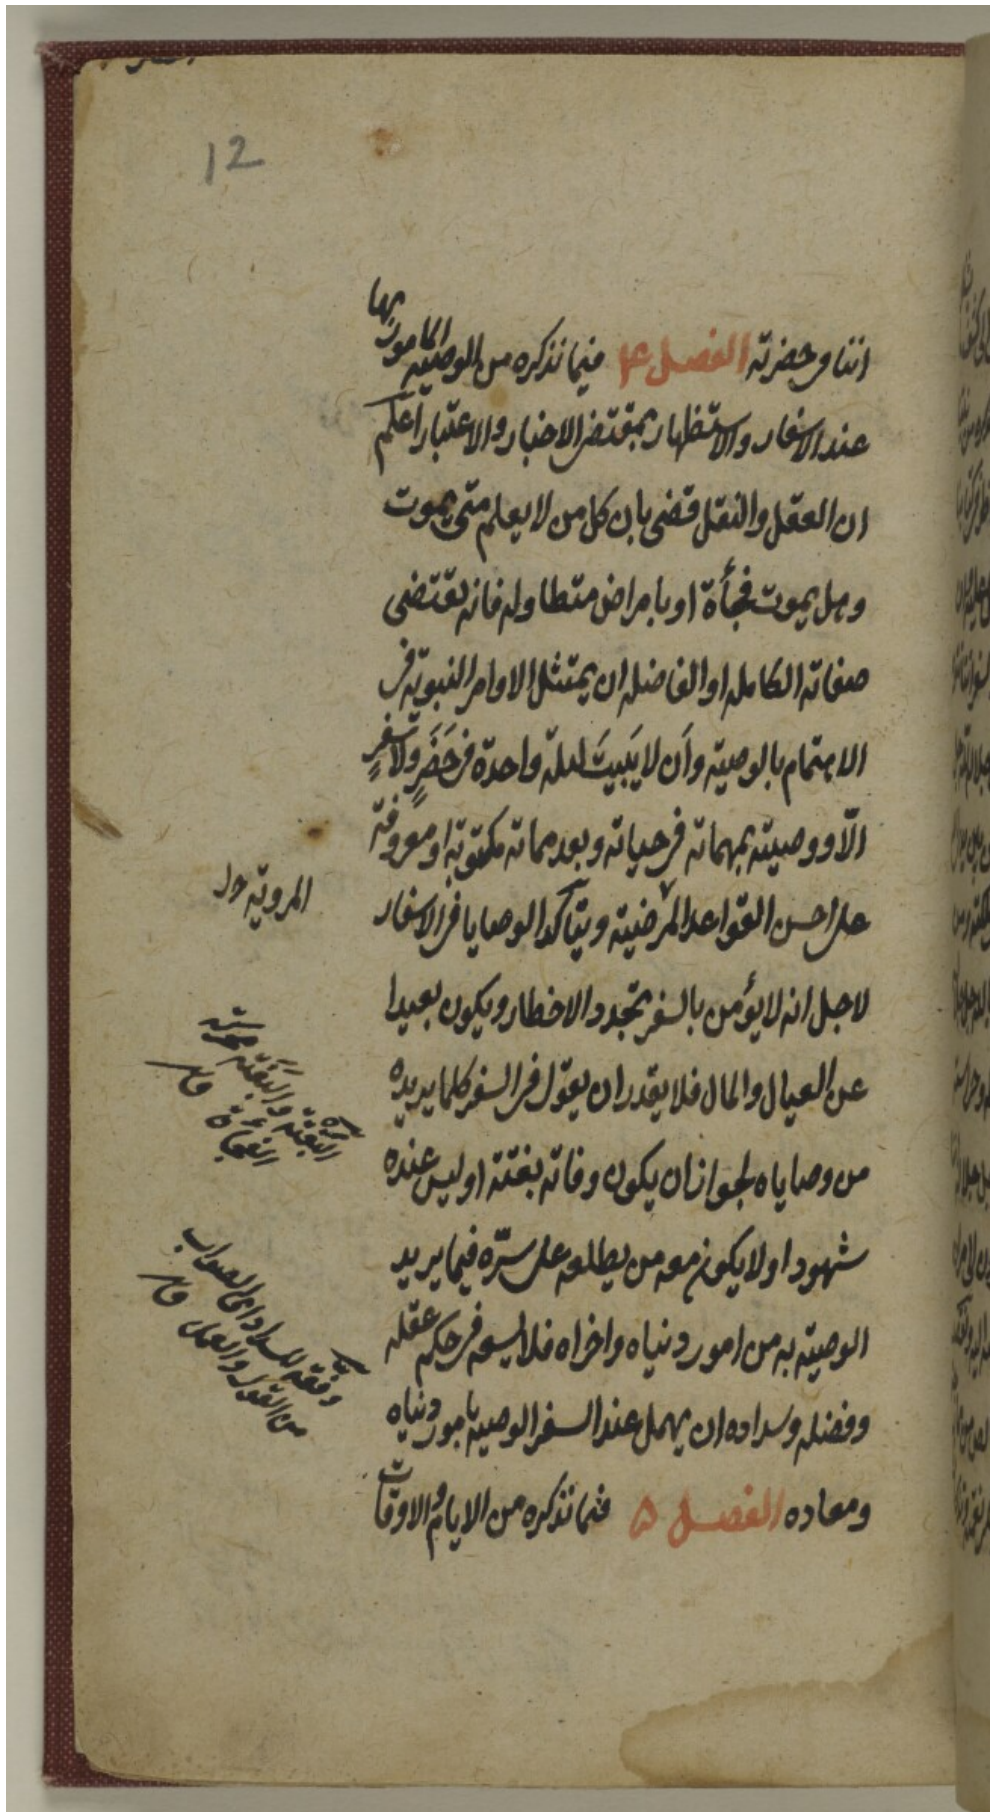 12
اننا فى حضرته الفصل ۴ فيما نذكره من الوصيّة المامور بها
عند الاسفار والاستظهار بمقتضى الاخبار والاعتبار اعلم
ان العقل والنقل قضى بان كل من لا يعلم متى يموت
وهل يموت فجأة او بامراض متطاوله فانه يقتضى
صفاته الكامله او الفاضله ان يمتثل الاوامر النبويّة فى
الاهتمام بالوصيّة وأن لا يَبيتَ ليلة واحدة فى حَضَرٍ ولا سَفَرٍ
الّا ووصيته بمهماته فى حياته وبعد مماته مكتوبة او معروفة
على احسن القواعد المرضيّة ويتأكد الوصايا فى الاسفار
لاجل انه لا يؤمن بالسفر تجدد الاخطار ويكون بعيدا
عن العيال والمال فلا يقدر ان يقول فى السفر كلما يريده
من وصاياه لجواز ان يكون وفاته بغتة او ليس عنده
شهود او لا يكون معه من يطلعه على سرّه فيما يريد
الوصيّة به من امور دنياه واخراه فلا يسعه فى حكم عقله
وفضله وسداده ان يهمل عند السفر الوصية بامور دنياه
ومعاده الفصل ۵ فيما نذكره من الايام والاوقات
المرويّة
البغتة والبَغَتَة محركة
الفجأة ق
وفقه للسداد اى الصواب
من القول والعمل ق